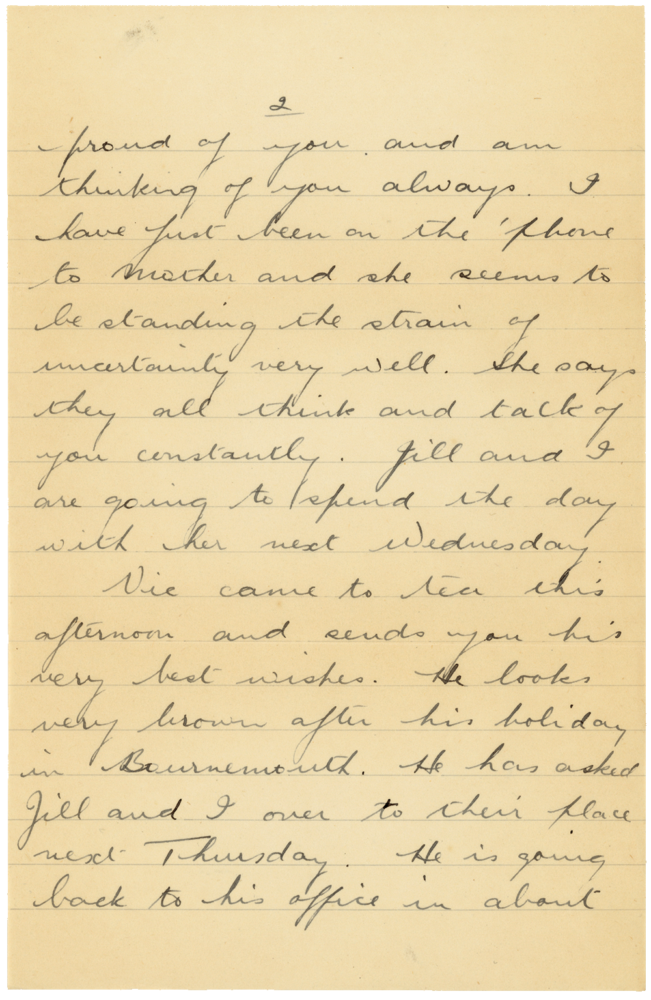 2
proud of you and am
thinking of you always. I
have just been on the 'phone
to Mother and she seems to
be standing the strain of
uncertainty very well. She says
they all think and talk of
you constantly. Jill and I
are going to spend the day
with her next Wednesday.
Vic came to tea this
afternoon and sends you his
very best wishes. He looks
very brown after his holiday
in Bournemouth. He has asked
Jill and I over to their place
next Thursday. He is going
back to his office in about